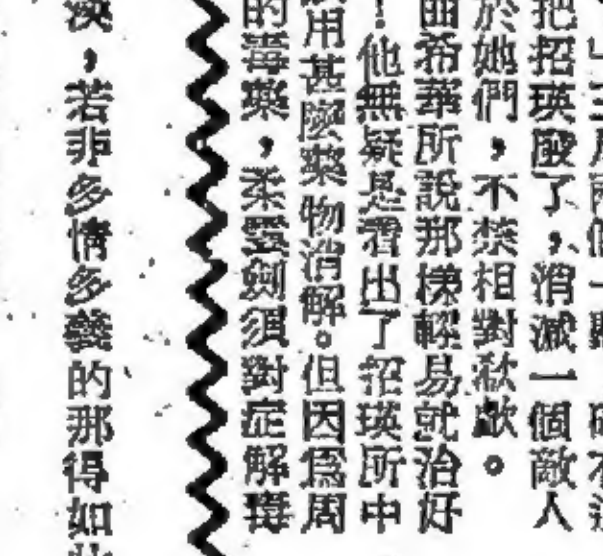 把招瑛廢了，消滅一個敵人
於她們，不禁相對欷歔。
曲希華所說那樣輕易就治好
！他無疑是看出了招瑛所中
用甚麽藥物消解。但因爲周
的毒藥，柔靈劍須對症解毒
，若非多情多義的那得如